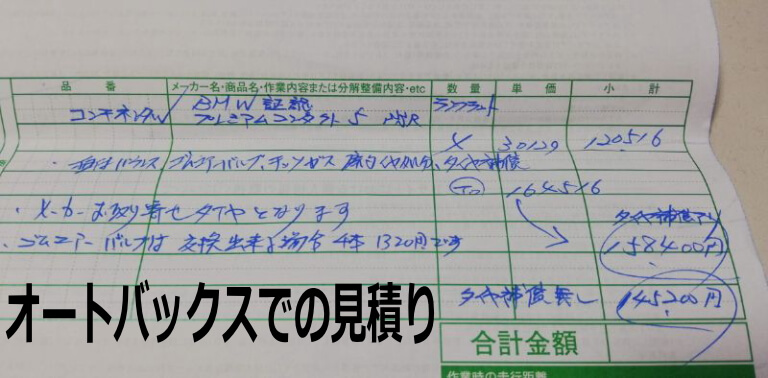 品 番 メーカー名・商品名・作業内容または分解整備内容・etc 数 量 単 価 小 計
コンチネンタル BMW承認 ランフラット
プレミアムコンタクト5
4 30129 120516
ゴムエアーバルブ、チッソガス タイヤ補償
164516
・メーカーお取り寄せタイヤとなります タイヤ補償あり
・ゴムエアーバルブは 交換出来る場合 4本 1320円です 158400円
オートバックスでの見積り
タイヤ補償無し 145200円
合計金額
作業時の走行距離